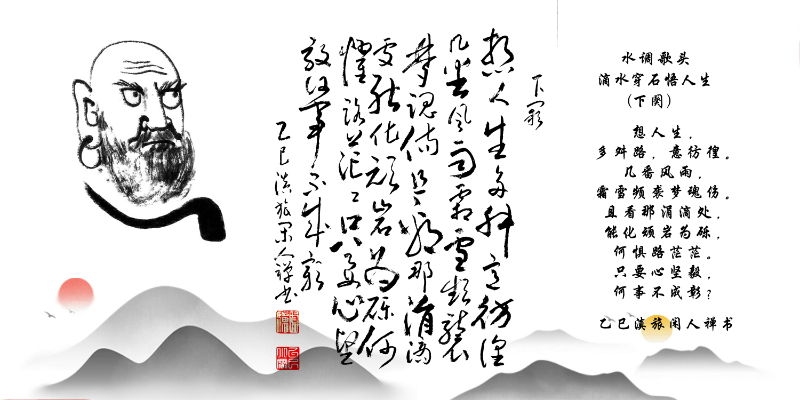 下阕
想人生多舛意彷徨
几番风雨霜雪频袭
梦魂伤且看那涓滴
处能化顽岩为砾何
惧路茫茫只要心坚
毅何事不成彰
乙巳滇旅闲人禅书
水调歌头
滴水穿石悟人生
（下阕）
想人生，
多舛路，意彷徨。
几番风雨，
霜雪频袭梦魂伤。
且看那涓滴处，
能化顽岩为砾。
何惧路茫茫。
只要心坚毅，
何事不成彰？
乙巳滇旅闲人禅书